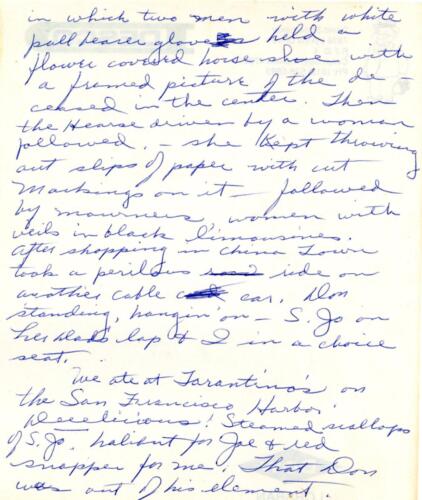 in which two men with white
pall bearer gloves held a
flower covered horse shoe with
a framed picture of the de-
ceased in the center. Then
the Hearse driven by a woman
followed. - she kept throwing
out slips of paper with cut
markings on it - followed
by mowrners, women with
veils in black limousines.
After shopping in China Town
took a perilous ride on
another cable car. Don
standing, hangin' on - S. Jo on
her Dad's lap & I in a choice
seat.
We ate at Tarantino's on
the San Francisco Harbor.
Deeelicious! Steamed scallops
S. Jo, halibut for Joe & red
snapper for me. That Don
was out of his element.